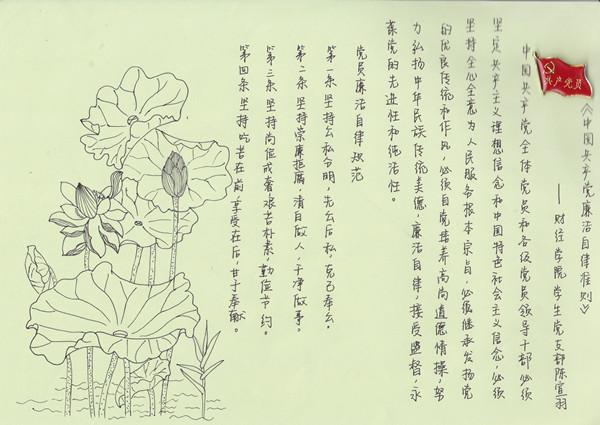 共产党员
《中国共产党廉洁自律准则》
——财经学院学生党支部陈宣羽
中国共产党全体党员和各级党员领导干部必须
坚定共产主义理想信念和中国特色社会主义信念,必须
坚持全心全意为人民服务根本宗旨,必须继承发扬党
的优良传统和作风,必须自觉培养高尚道德情操,努
力弘扬中华民族传统美德,廉洁自律,接受监督,永
葆党的先进性和纯洁性。
党员廉洁自律规范
第一条 坚持公私分明,先公后私,克己奉公。
第二条 坚持崇廉拒腐,清白做人,干净做事。
第三条 坚持尚俭戒奢,艰苦朴素,勤俭节约。
第四条 坚持吃苦在前,享受在后,甘于奉献。